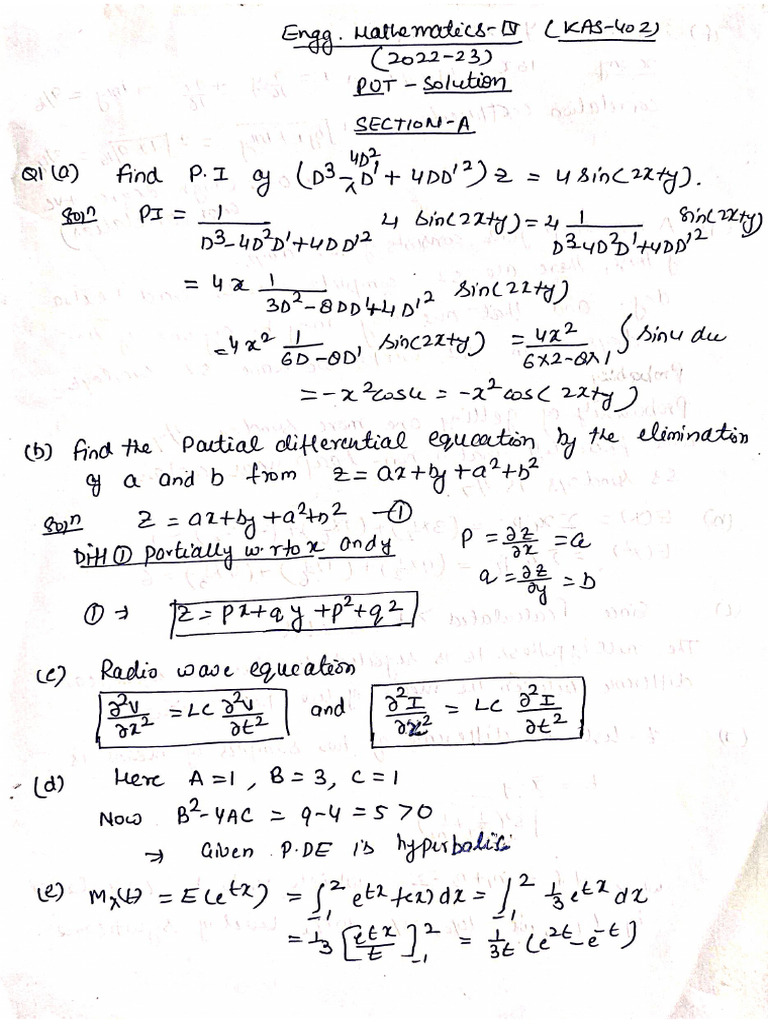 Engg. Mathematics-IV (KAS-402)
(2022-23)
PUT - Solution
SECTION-A
Q1(a) find P.I of (D³ - 4D²D' + 4DD'²) z = 4 sin(2x+y).
Soln PI = 1/(D³-4D²D'+4DD'²) 4 sin(2x+y) = 4 1/(D³-4D²D'+4DD'²) sin(2x+y)
= 4x 1/(3D²-8DD'+4D'²) sin(2x+y)
= 4x² 1/(6D-8D') sin(2x+y) = 4x²/(6×2-8×1) ∫ sinu du
= -x²cosu = -x²cos(2x+y)
(b) find the Partial differential equeation by the elimination
of a and b from z = ax+by+a²+b²
Soln z = ax+by+a²+b² -①
Diff ① partially w.r to x and y P = ∂z/∂x = a
q = ∂z/∂y = b
① ⇒ z = px+qy+p²+q²
(c) Radio wave equeation
∂²V/∂x² = LC ∂²V/∂t² and ∂²I/∂x² = LC ∂²I/∂t²
(d) Here A=1, B=3, C=1
Now B²-4AC = 9-4 = 5 >0
⇒ Given P.DE is hyperbolic
(e) Mx(t) = E(e^tx) = ∫₋₁² e^tx f(x) dx = ∫₋₁² 1/3 e^tx dx
= 1/3 [e^tx/t]₋₁² = 1/3t (e^2t - e^-t)